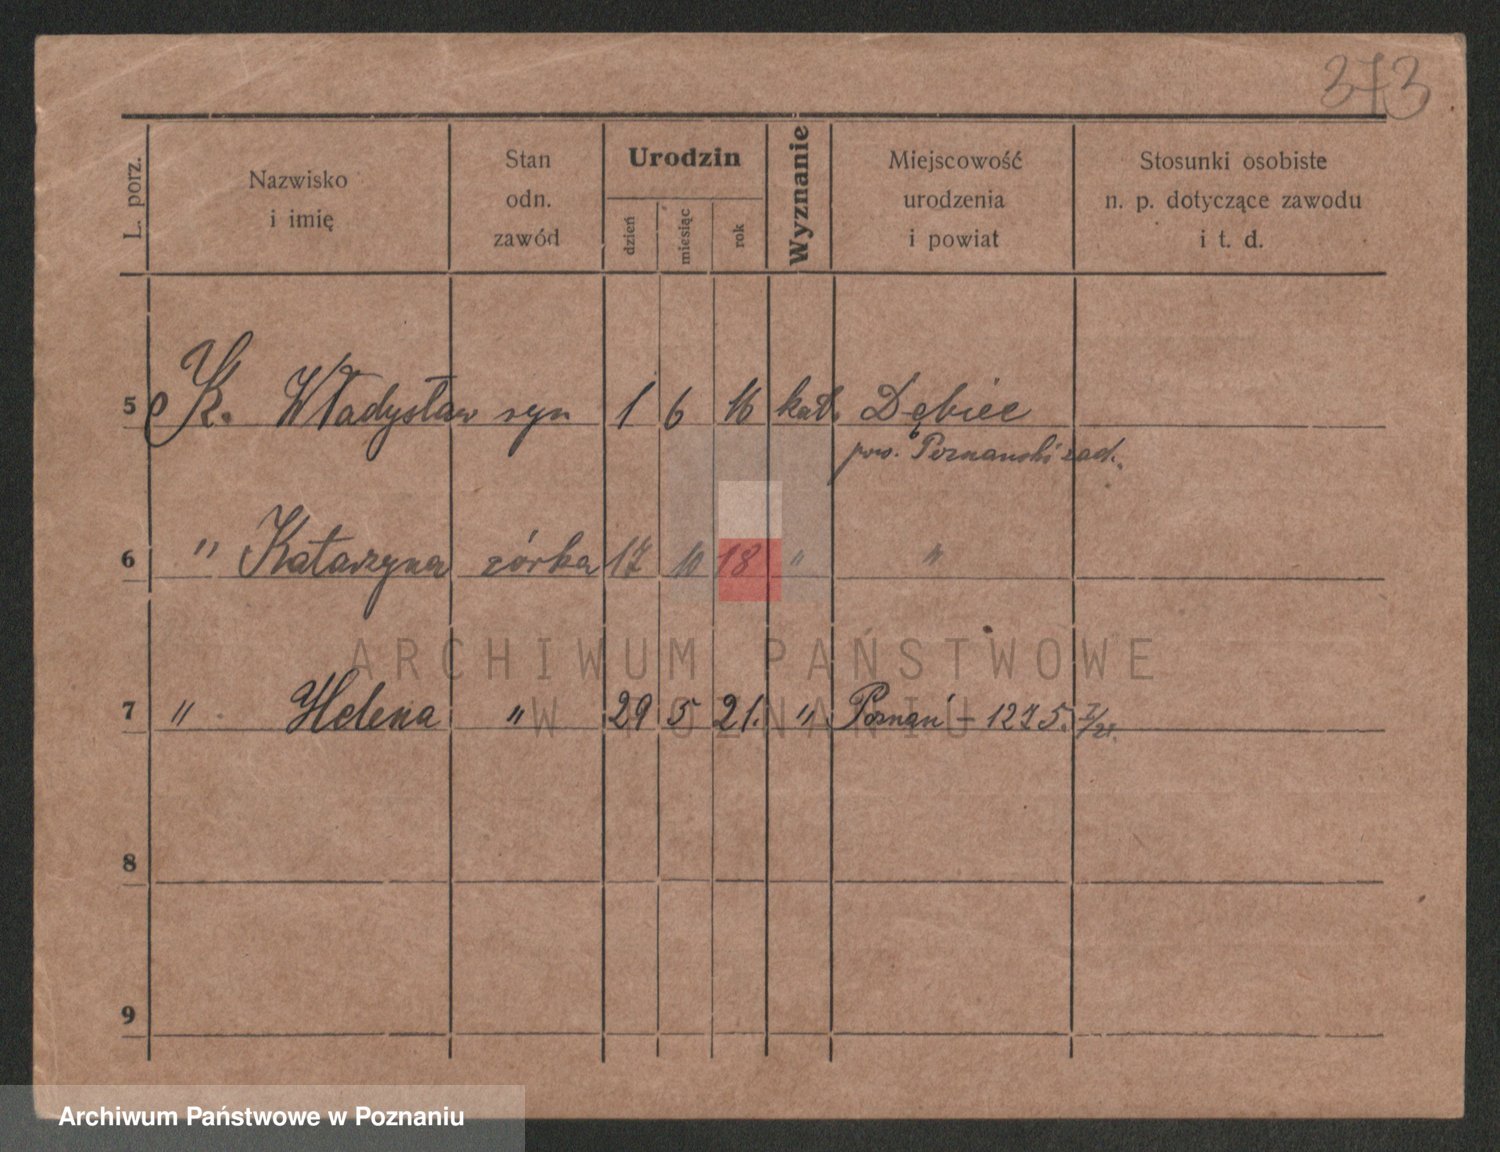 373
L. porz.
Nazwisko
i imię
Stan
odn.
zawód
Urodzin
dzień
miesiąc
rok
Wyznanie
Miejscowość
urodzenia
i powiat
Stosunki osobiste
n. p. dotyczące zawodu
i t. d.
5 K. Władysław syn 1 6 16 kat. Dębiec
pow. Poznański
6 " Katarzyna córka 17 10 18 " "
ARCHIWUM PAŃSTWOWE
W POZNANIU
7 " Helena " 29 5 21. " Poznań - 1275. I/21.
8
9
Archiwum Państwowe w Poznaniu